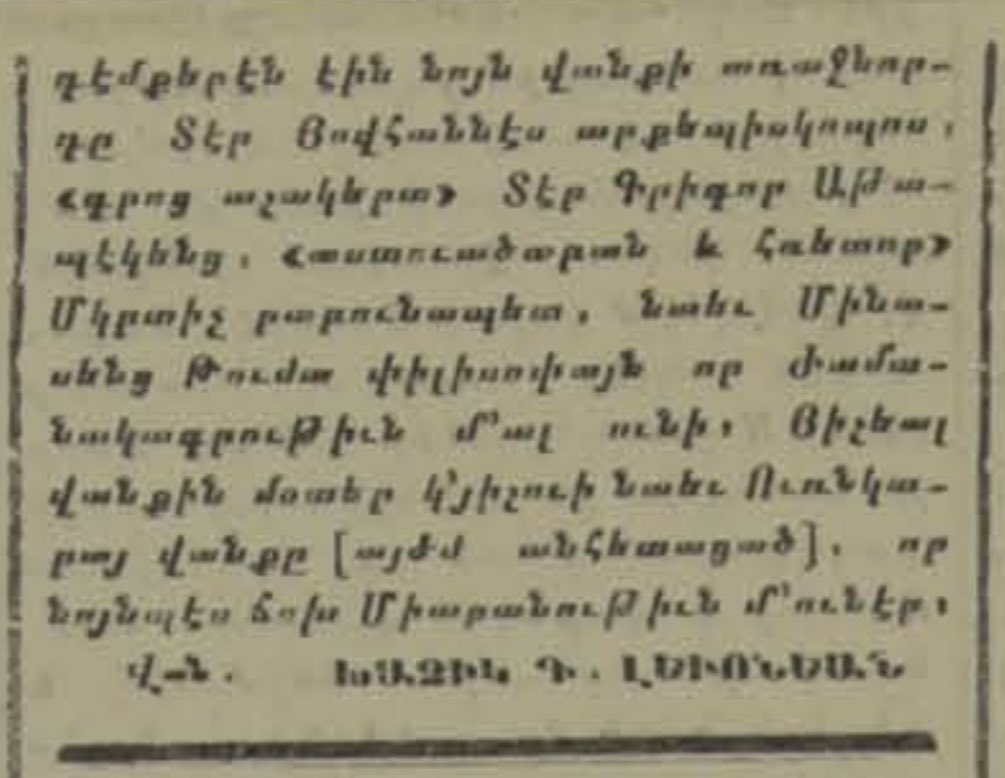 դէմքերէն էին նոյն վանքի առաջնոր-
դը Տէր Յովհաննէս արքեպիսկոպոս,
«գրոց աշակերտ» Տէր Գրիգոր Աթա-
պէկենց, «աստուածաբան և հռետոր»
Մկրտիչ րաբունապետ, նաեւ Մինա-
սենց Թումա փիլիսոփայն որ ժամա-
նակագրութիւն մ՚ալ ունի։ Յիշեալ
վանքին մօտեր կ՚յիշուի նաեւ Ուռնկա-
րայ վանքը [այժմ անհետացած], որ
նոյնպէս ճոխ Միաբանութիւն մ՚ունէր։
Վան. ԽԱՉԻԿ Գ. ԼԵՒՈՆԵԱՆ